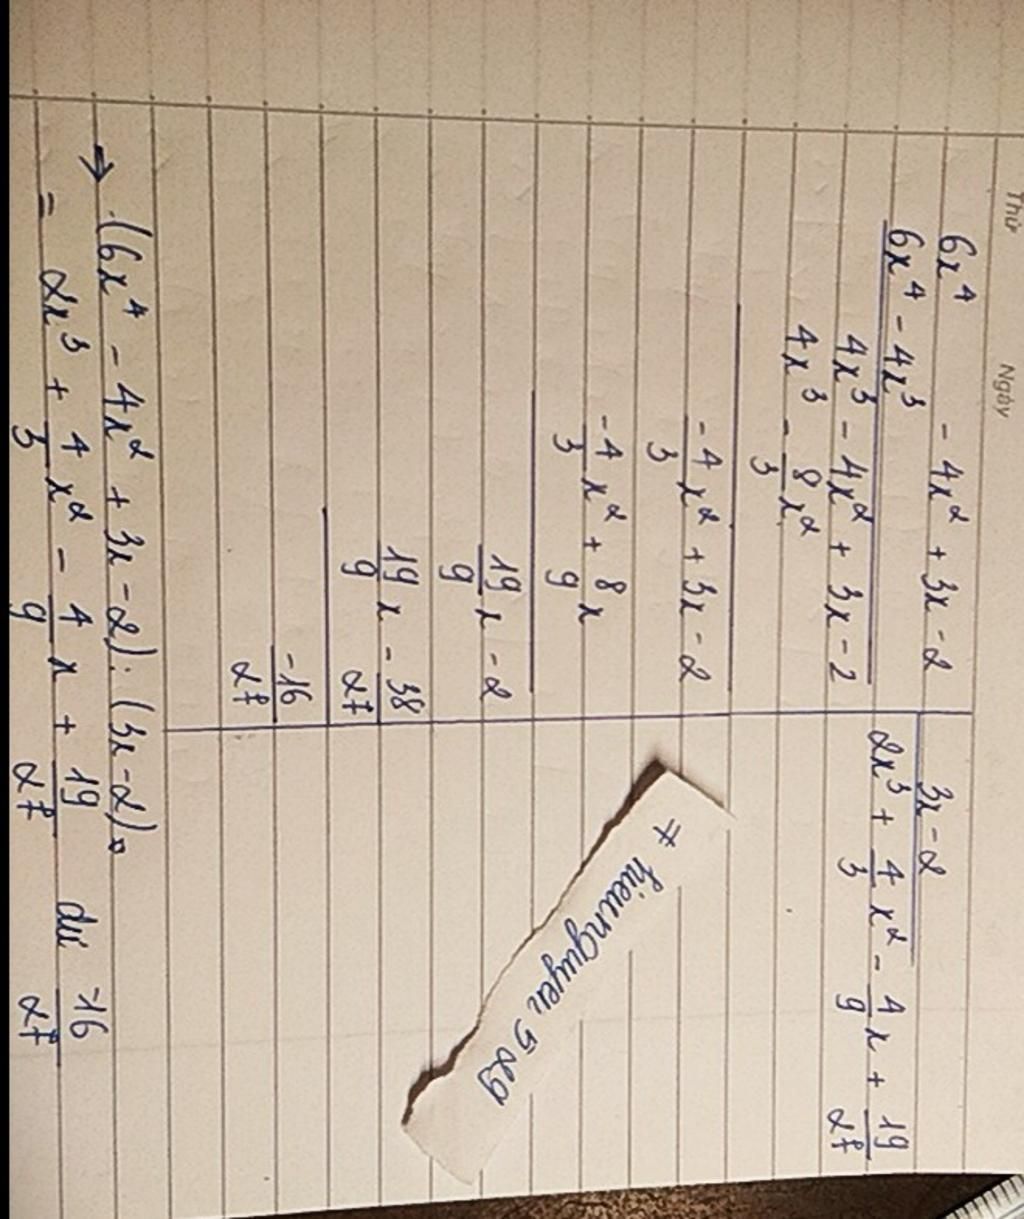 Thứ
Ngày
6x⁴ - 4x² + 3x - 2
3x - 2
6x⁴ - 4x³
2x³ + 4/3 x² - 4/9 x + 19/27
4x³ - 4x² + 3x - 2
4x³ - 8/3 x²
-4/3 x² + 3x - 2
-4/3 x² + 8/9 x
19/9 x - 2
19/9 x - 38/27
-16/27
* hieunguyen529
→ (6x⁴ - 4x² + 3x - 2) : (3x - 2)
= 2x³ + 4/3 x² - 4/9 x + 19/27 dư -16/27